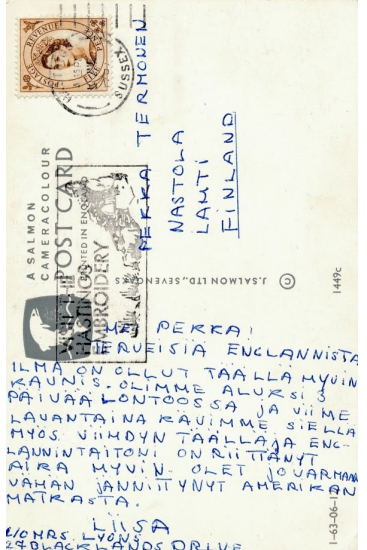 REVENUE
POSTAGE
SUSSEX
PEKKA TERMONEN
NASTOLA
LAHTI
FINLAND
A SALMON
CAMERACOLOUR
POST CARD
PRINTED IN ENGLAND
VISIT THE
HASTINGS
EMBROIDERY
J. SALMON LTD., SEVENOAKS ©
1449c
HEI PEKKA!
TERVEISIÄ ENGLANNISTA
ILMA ON OLLUT TÄÄLLÄ MYVIN
KAUNIS. OLIMME ALUKSI 3
PÄIVÄÄ LONTOOSSA JA VIIME
LAUANTAINA KÄVIMME SIELLÄ
MYÖS. VIIHDYN TÄÄLLÄ JA ENG-
LANNINTAITONI ON RIITTÄNYT
AIKA MYVIN. OLET JO VARMAAN
VÄHÄN JÄNNITTÄNYT AMERIKAN
MATKASTA.
LIISA
C/O MRS. LYONS
27 BLACKLANDS DRIVE
1-63-06-1